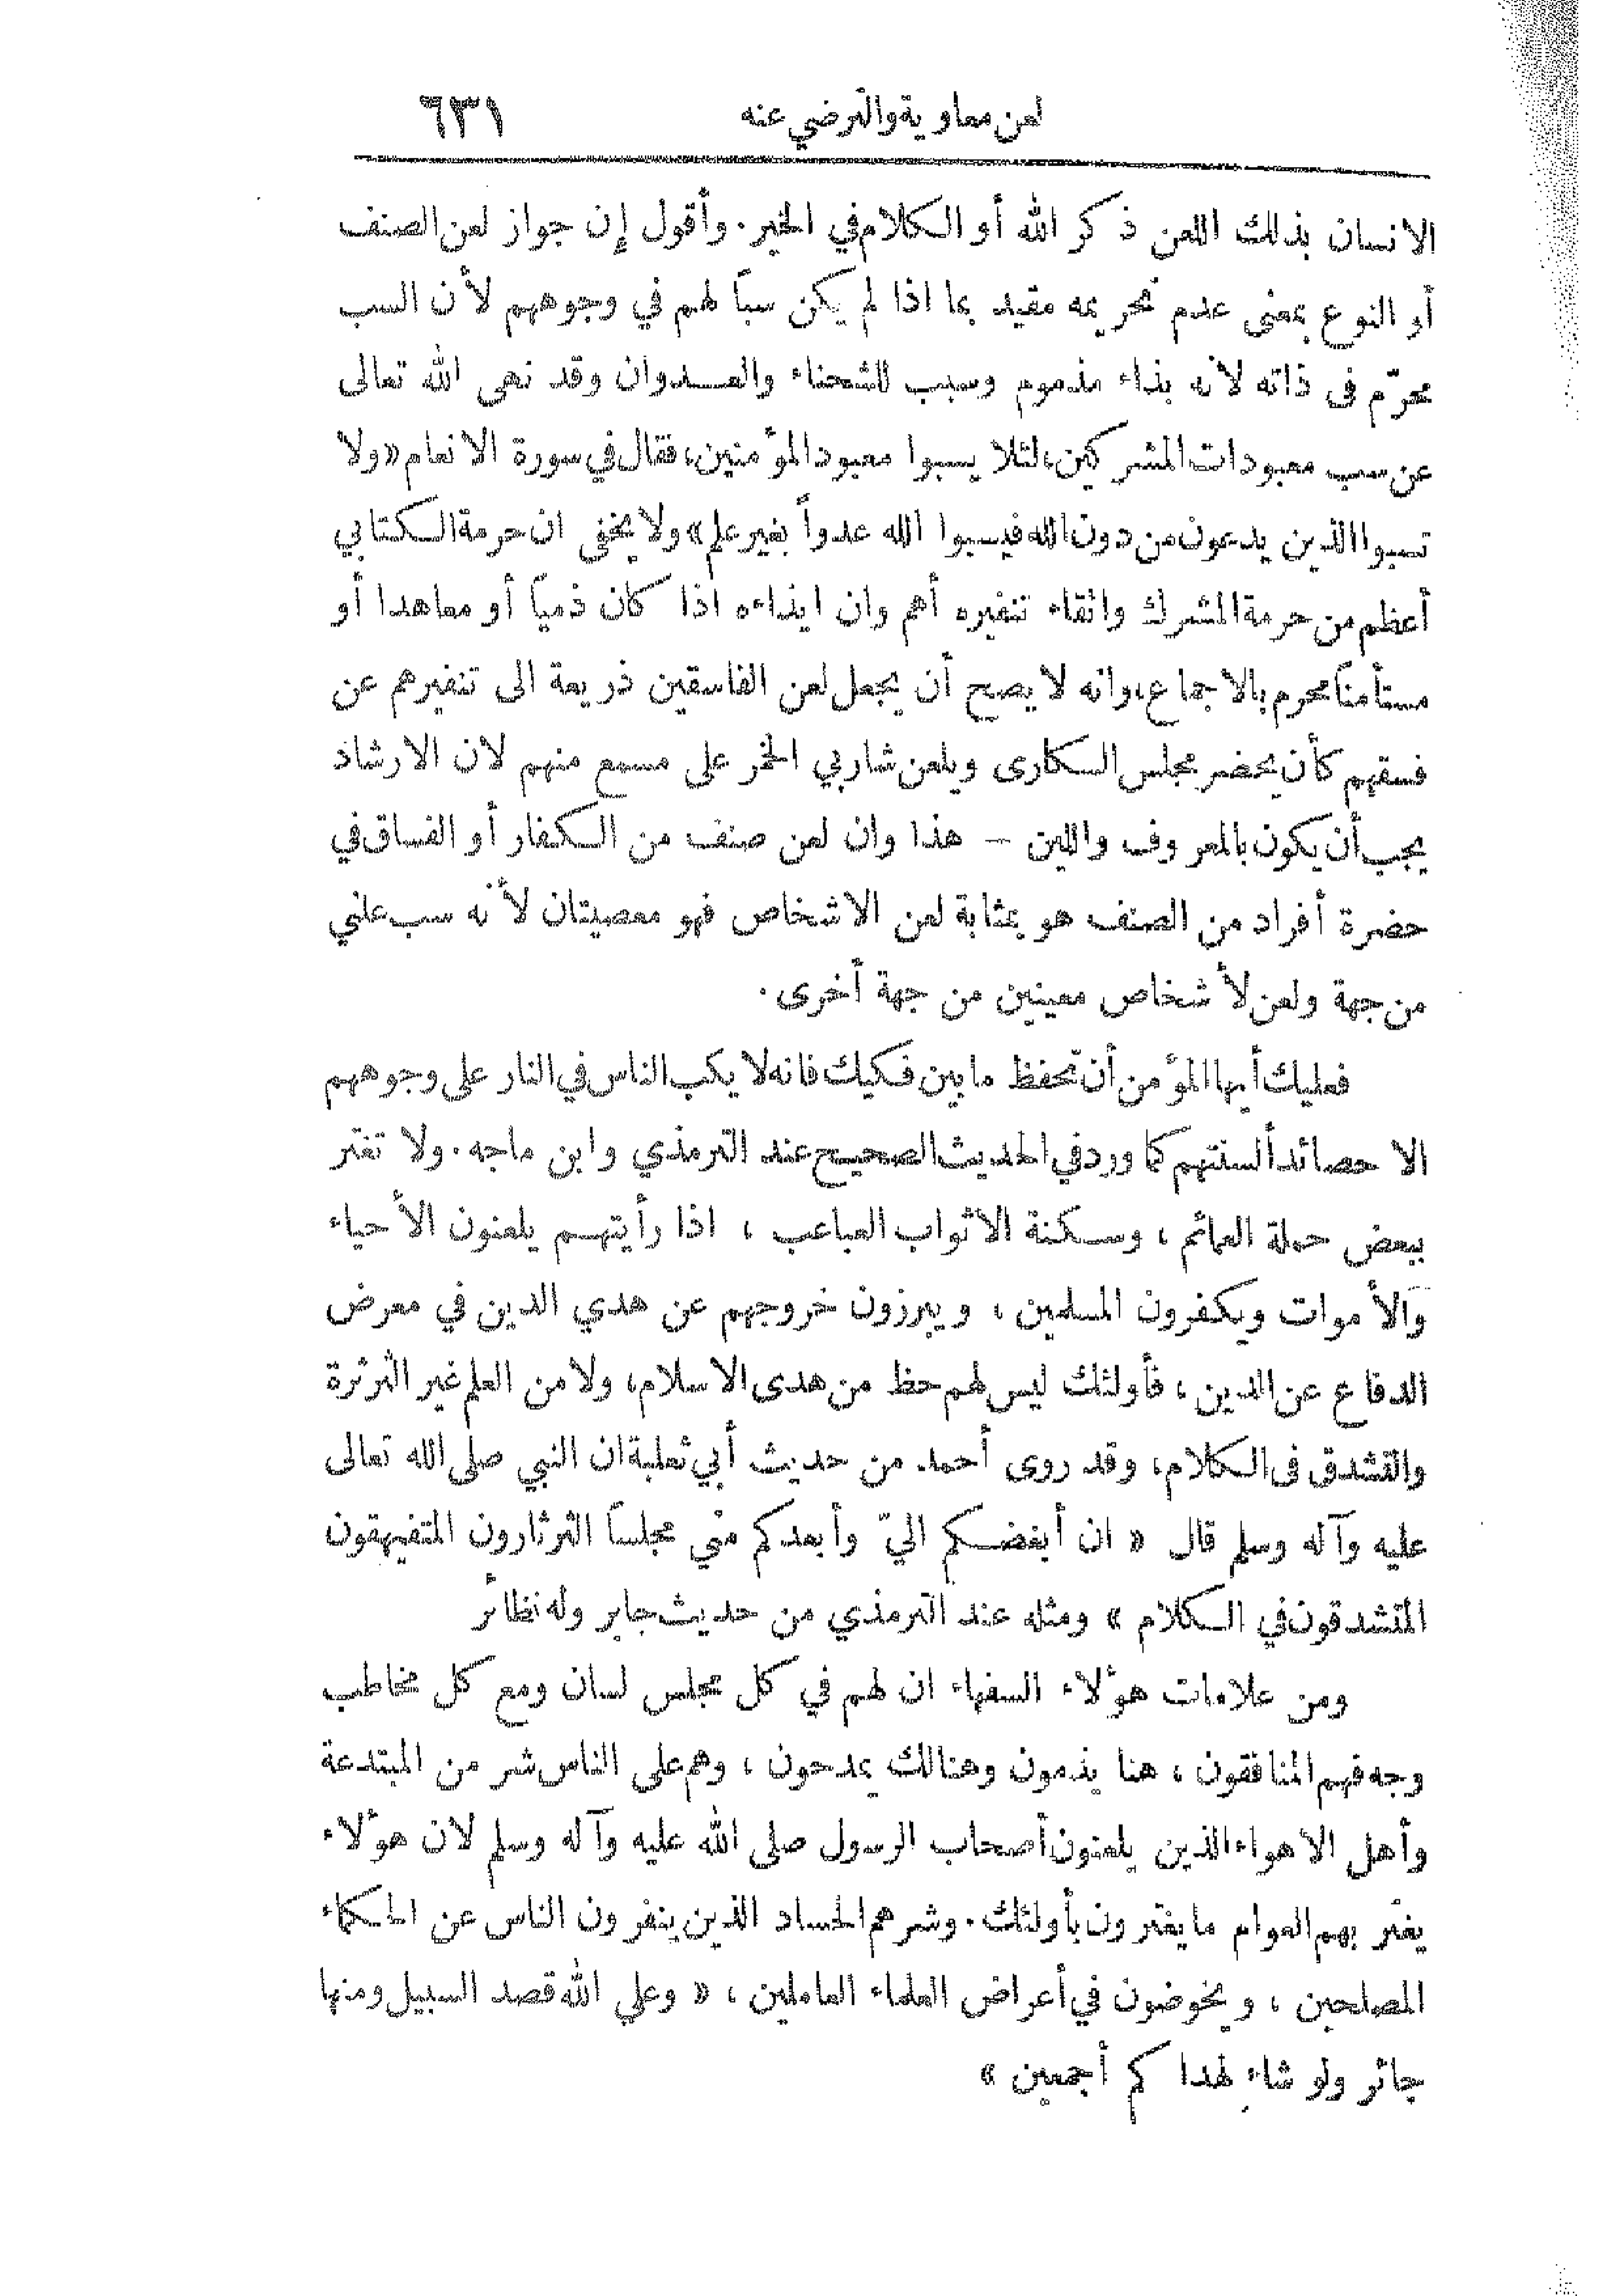 لعن معاوية والترضي عنه ٦٣١
الانسان بذلك اللعن ذكر الله أو الكلام في الخير. وأقول إن جواز لعن الصنف
أو النوع بمعنى عدم تحريمه مقيد بما اذا لم يكن سباً لهم في وجوههم لأن السب
محرّم فى ذاته لانه بذاء مذموم وسبب للشحناء والعدوان وقد نهى الله تعالى
عن سب معبودات المشركين، لئلا يسبوا معبود المؤمنين، فقال في سورة الانعام «ولا
تسبوا الذين يدعون من دون الله فيسبوا الله عدواً بغير علم» ولا يخفى ان حرمة الكتابي
أعظم من حرمة المشرك واتقاء تنفيره أهم وان ايذاءه اذا كان ذمياً أو معاهدا أو
مستأمناً محرم بالاجماع، وانه لا يصح أن يجعل لعن الفاسقين ذريعة الى تنفيرهم عن
فسقهم كأن يحضر مجلس السكارى ويلعن شاربي الخمر على مسمع منهم لان الارشاد
يجب أن يكون بالمعروف واللين – هذا وان لعن صنف من الكفار أو الفساق في
حضرة أفراد من الصنف هو بمثابة لعن الاشخاص فهو معصيتان لأنه سب علني
من جهة ولعن لأشخاص معينين من جهة أخرى.
فعليك أيها المؤمن أن تحفظ ما بين فكيك فانه لا يكب الناس في النار على وجوههم
الا حصائد ألسنتهم كما ورد في الحديث الصحيح عند الترمذي وابن ماجه. ولا تغتر
ببعض حملة العمائم، وسكنة الاثواب العباعب، اذا رأيتهم يلعنون الأحياء
والأموات ويكفرون المسلمين، ويبرزون خروجهم عن هدي الدين في معرض
الدفاع عن الدين، فأولئك ليس لهم حظ من هدى الاسلام، ولا من العلم غير الثرثرة
والتشدق فى الكلام، وقد روى أحمد من حديث أبي ثعلبة ان النبي صلى الله تعالى
عليه وآله وسلم قال « ان أبغضكم اليّ وأبعدكم مني مجلساً الثرثارون المتفيهقون
المتشدقون في الكلام » ومثله عند الترمذي من حديث جابر وله نظائر
ومن علامات هؤلاء السفهاء ان لهم في كل مجلس لسان ومع كل مخاطب
وجه فهم المنافقون، هنا يذمون وهنالك يمدحون، وهم على الناس شر من المبتدعة
وأهل الاهواء الذين يلعنون أصحاب الرسول صلى الله عليه وآله وسلم لان هؤلاء
يغتر بهم العوام ما يغترون بأولئك. وشرهم الحساد الذين ينفرون الناس عن الحكماء
المصلحين، ويخوضون في أعراض العلماء العاملين، « وعلى الله قصد السبيل ومنها
جائر ولو شاء لهداكم أجمعين »